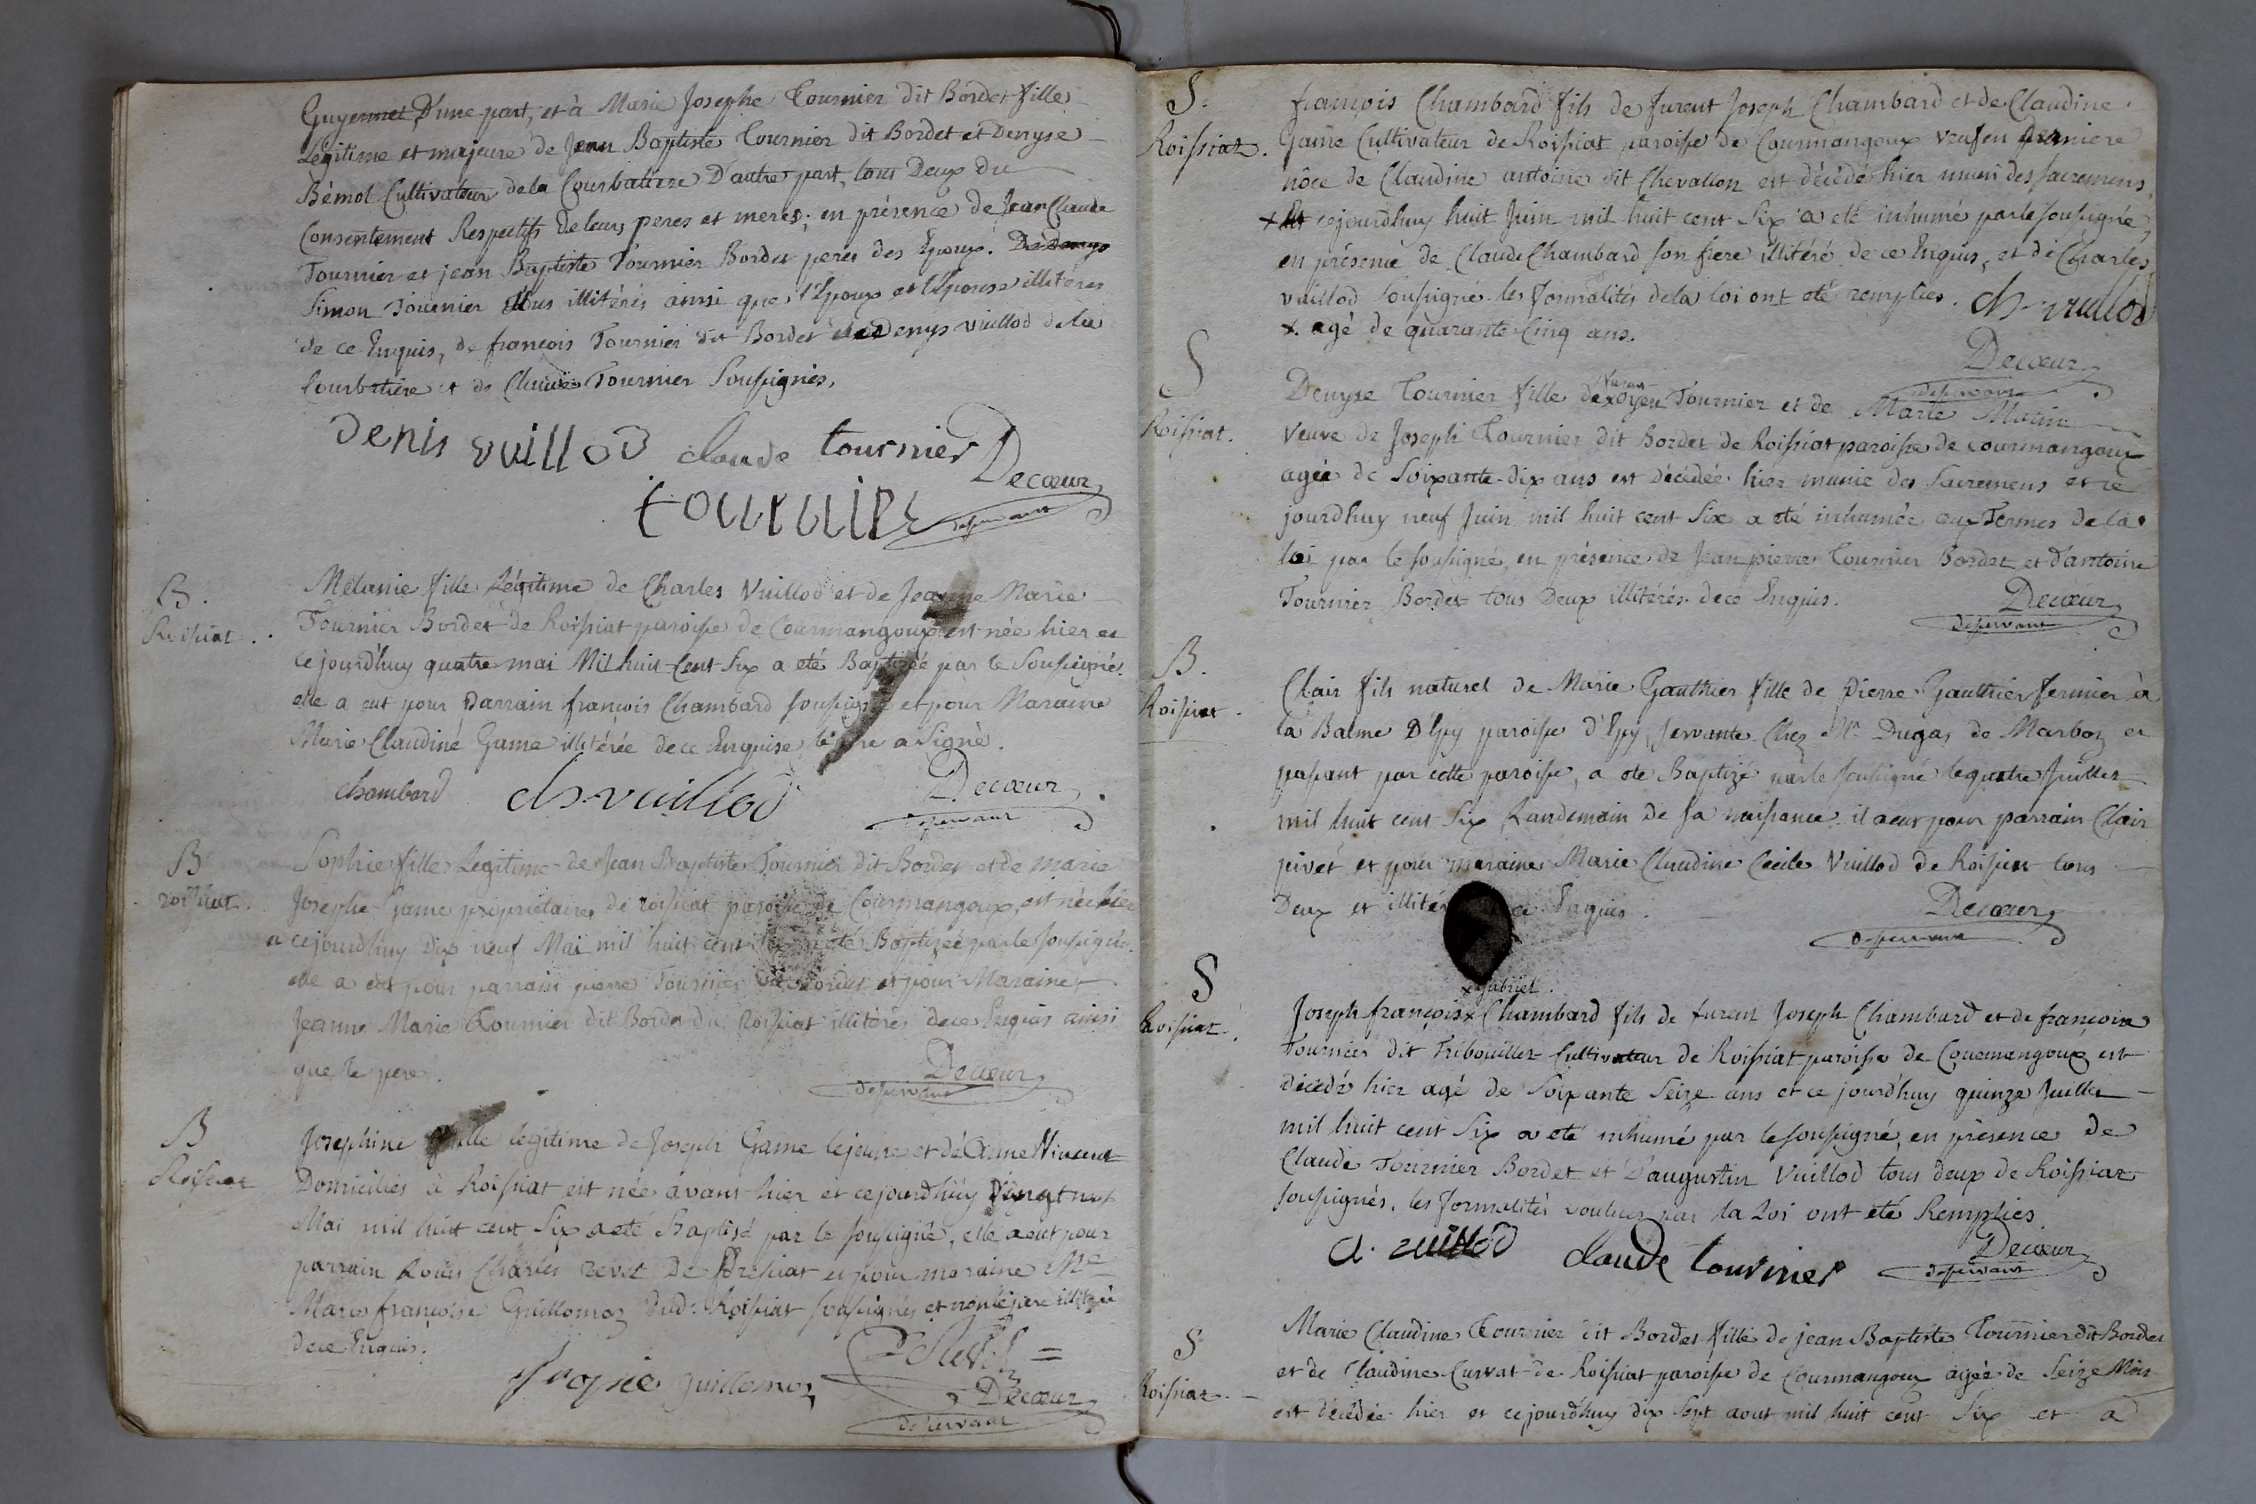 Guyennet D'une part, et à Marie Josephe Tournier dit Bordet fille
Légitime et majeure de Jean Baptiste Tournier dit Bordet et Denyse
Bémol Cultivateur de la Courbatiere D'autre part, tous Deux du
Consentement Respectifs de leurs peres et meres; en présence de Jean Claude
Tournier et jean Baptiste Tournier Bordet peres des Epoux.
Simon Tournier tous illitérés ainsi que l'Epoux et l'Epouse illitéres
de ce Enquis, de françois Tournier dit Bordet de Denys Vuillod de la
Courbatiere et de Claude Tournier Soussignés,
Denis vuillod claude tournier Decœur
desservant
B.
Roissiat.
Mélanie fille Légitime de Charles Vuillod et de Jeanne Marie
Tournier Bordet de Roissiat paroisse de Courmangoux est née hier et
ce jourd'huy quatre mai Mil huit Cent Six a eté Baptisée par le Soussigné.
elle a eut pour Parrain françois Chambard soussigné et pour Maraine
Marie Claudine Game illitérée de ce Enquise le pere a Signé.
chambard ch. vuillod Decœur
desservant
B
roissiat.
Sophie fille Legitime de Jean Baptiste Tournier dit Bordet et de marie
Josephe Game propriétaires de roissiat paroisse de Courmangoux, est née hier
a cejourdhuy Dix neuf Mai mil huit cent Six a eté Baptizée par le soussigné.
elle a eut pour parrain pierre Tournier dit Bordet et pour Maraine
Jeanne Marie Tournier dit Bordet de Roissiat illitérés de ce Enquis ainsi
que le pere.
Decœur
desservant
B
Roissiat
Josephine fille legitime de Joseph Game le jeune et de Anne Vincent
Domiciliés à Roissiat est née avant hier et cejourdhuy vingt
Mai mil huit cent Six a eté Baptisé par le soussigné, elle a eut pour
parrain Louis Charles De et pour maraine Mlle
Marie françoise Guillomoz dud. Roissiat soussignés et non le pere illitéré
de ce Enquis.
guillomoz
Decœur
desservant
S.
Roissiat.
françois Chambard fils de furent Joseph Chambard et de Claudine
Game Cultivateur de Roissiat paroisse de Courmangoux veuf en derniere
nôce de Claudine antoine dit Chevallon est décédé hier muni des sacremens,
x Et cejourdhuy huit Juin mil huit cent Six a eté inhumé par le soussigné,
en présence de Claude Chambard son frere illitéré de ce Enquis, et de Charles
vuillod soussigné. les formalités de la loi ont eté remplies. ch. vuillod
x. agé de quarante Cinq ans.
Decœur
desservant
S
Roissiat.
Denyse Tournier fille de x oyen Tournier et de Marie Morin
Veuve de Joseph Tournier dit Bordet de Roissiat paroisse de Courmangoux
agée de Soixante-dix ans est décédée hier munie des Sacremens et ce
jourdhuy neuf Juin mil huit cent Six a eté inhumée aux Termes de la
loi par le soussigné, en présence de Jean pierre Tournier Bordet et d'antoine
Tournier Bordet tous Deux illitérés de ce Enquis.
Decœur
desservant
B.
Roissiat.
Clair fils naturel de Marie Gauthier fille de Pierre Gauthier fermier à
la Balme D'Epy paroisse d'Epy, servante Chez Mr. Dugas de Marboz et
passant par cette paroisse, a ete Baptizé par le soussigné le quatre Juillet
mil huit cent Six Landemain de sa naissance. il a eut pour parrain Clair
pivet et pour maraine Marie Claudine Cecile Vuillod de Roissiat tous
Deux et illitérés de ce Enquis.
Decœur
desservant
S
Roissiat.
x Gabriel.
Joseph françois x Chambard fils de furent Joseph Chambard et de françoise
Tournier dit Tribouillet Cultivateur de Roissiat paroisse de Courmangoux est
décédé hier agé de Soixante Seize ans et ce jourdhuy quinze Juillet
mil huit cent Six a eté inhumé par le soussigné, en présence de
Claude Tournier Bordet et D'augustin Vuillod tous deux de Roissiat
soussignés. les formalités voulues par la Loi ont eté Remplies.
A. vuillod claude tournier Decœur
desservant
S
Roissiat.
Marie Claudine Tournier dit Bordet fille de jean Baptiste Tournier dit Bordet
et de Claudine Curvat de Roissiat paroisse de Courmangoux agée de Seize Mois
est décédée hier et cejourdhuy dix sept aout mil huit cent Six et a